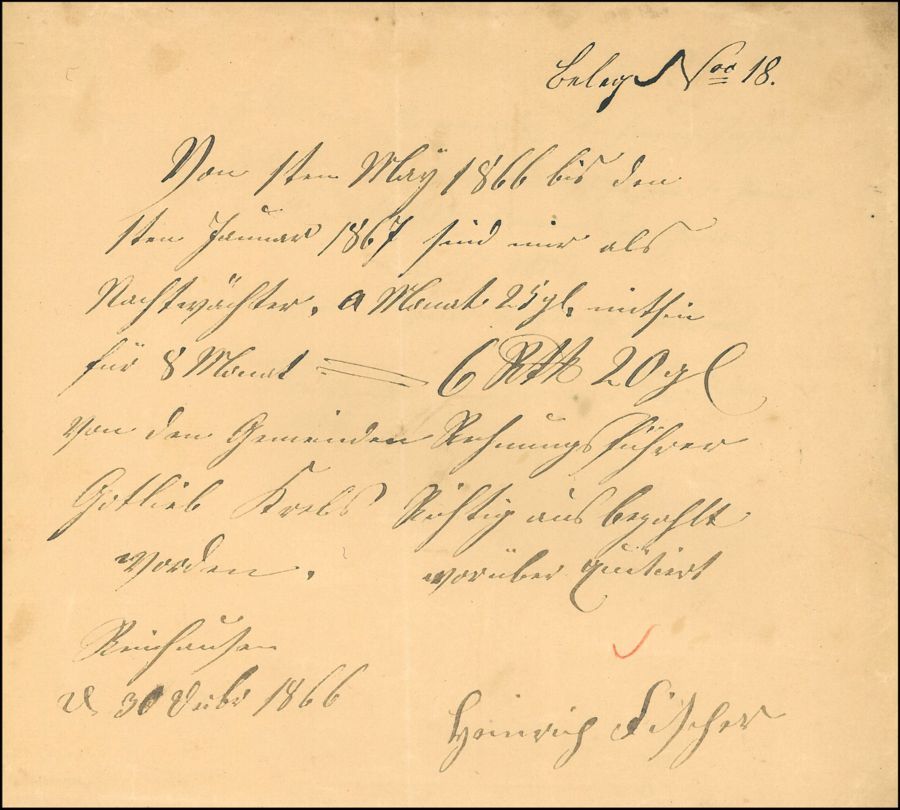 Beleg No 18.
Von 1ten May 1866 bis den
1ten Januar 1867 sind mir als
Nachtwächter, a Monat 25 gl. mithin
für 8 Monat = 6 Rth 20 gl
von den Gemeinden Rechnungsführer
Gotlieb Krebs Richtig aus bezahlt
worden. worüber Quitiert
Reinhausen
d 30 1866
Heinrich Fischer